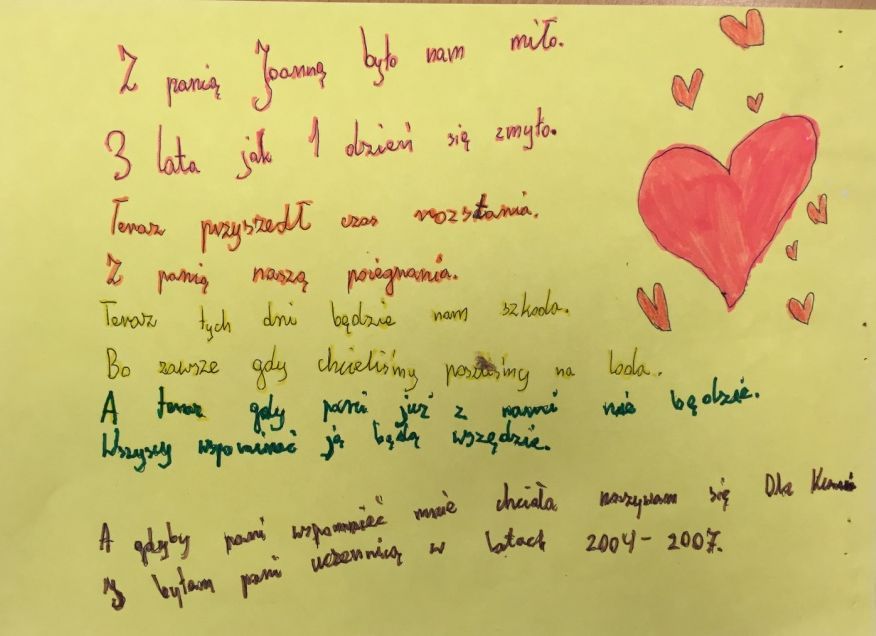 Z panią Joanną było nam miło.
3 lata jak 1 dzień się zmyło.
Teraz przyszedł czas rozstania.
Z panią naszą pożegnania.
Teraz tych dni będzie nam szkoda.
Bo zawsze gdy chcieliśmy poszliśmy na loda.
A teraz gdy pani już z nami nie będzie.
Wszyscy wspominać ją będą wszędzie.
A gdyby pani wspomnieć mnie chciała nazywam się
I byłam pani uczennicą w latach 2004-2007.